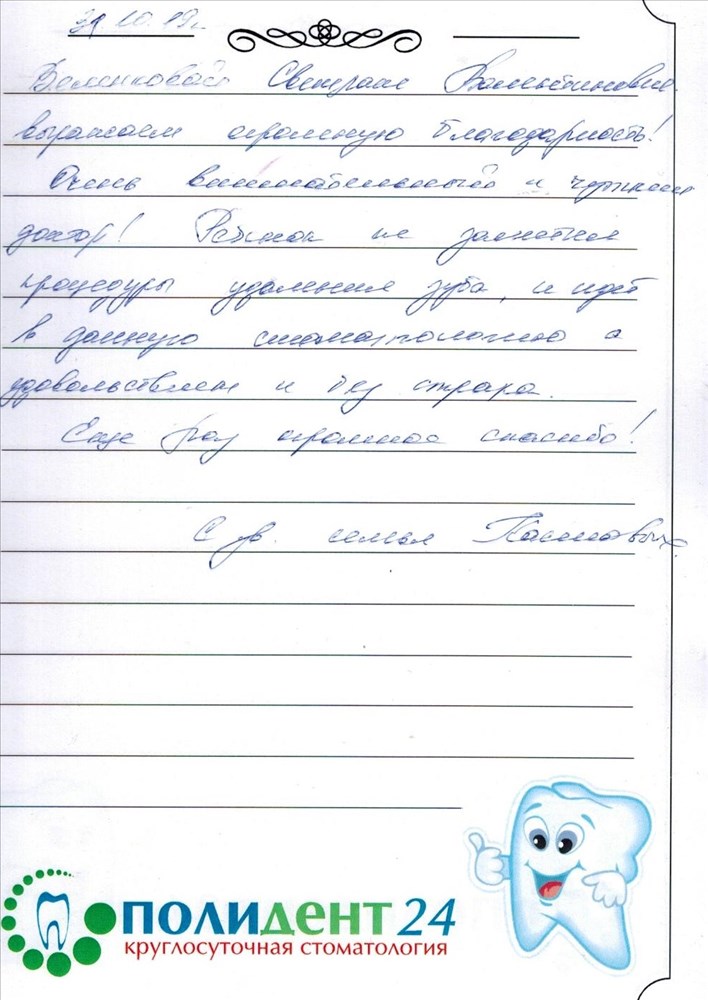 30.10.19г.
Светлане Валентиновне
выражаем огромную благодарность!
Очень внимательный и чуткий
доктор! Ребенок не заметил
процедуры удаления зуба, и идет
в данную стоматологию с
удовольствием и без страха.
Еще раз огромное спасибо!
С ув. семья
ПОЛИДЕНТ 24
КРУГЛОСУТОЧНАЯ СТОМАТОЛОГИЯ